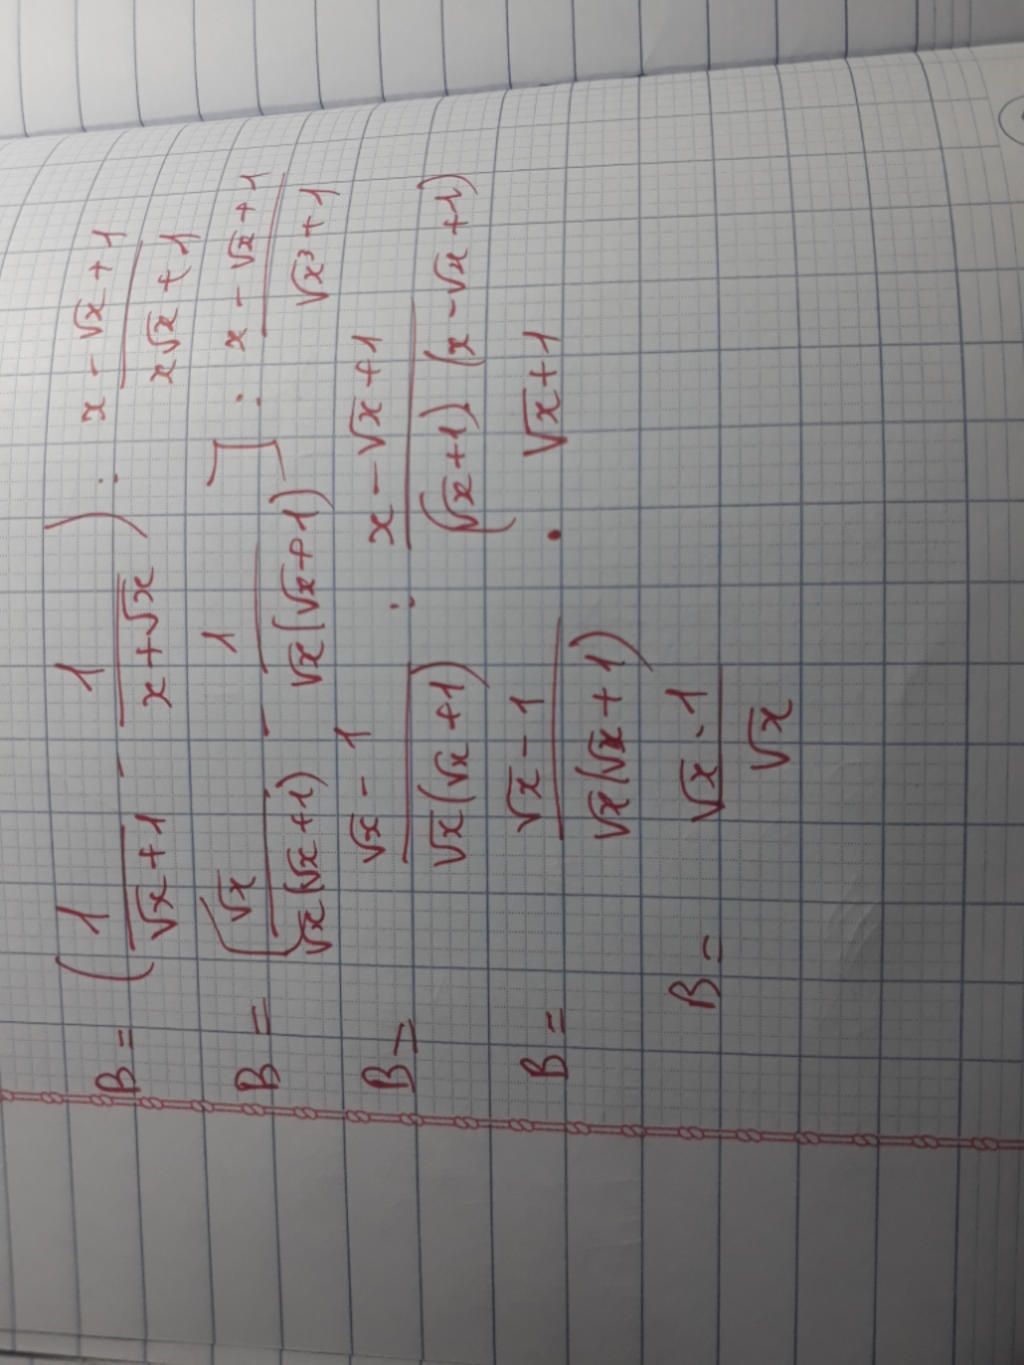 B = (1/(√x+1) - 1/(x+√x)) : (x-√x+1)/(x√x+1)
B = [√x/(√x(√x+1)) - 1/(√x(√x+1))] : (x-√x+1)/(√x³+1)
B = (√x-1)/(√x(√x+1)) : (x-√x+1)/((√x+1)(x-√x+1))
B = (√x-1)/(√x(√x+1)) . √x+1
B = (√x-1)/√x